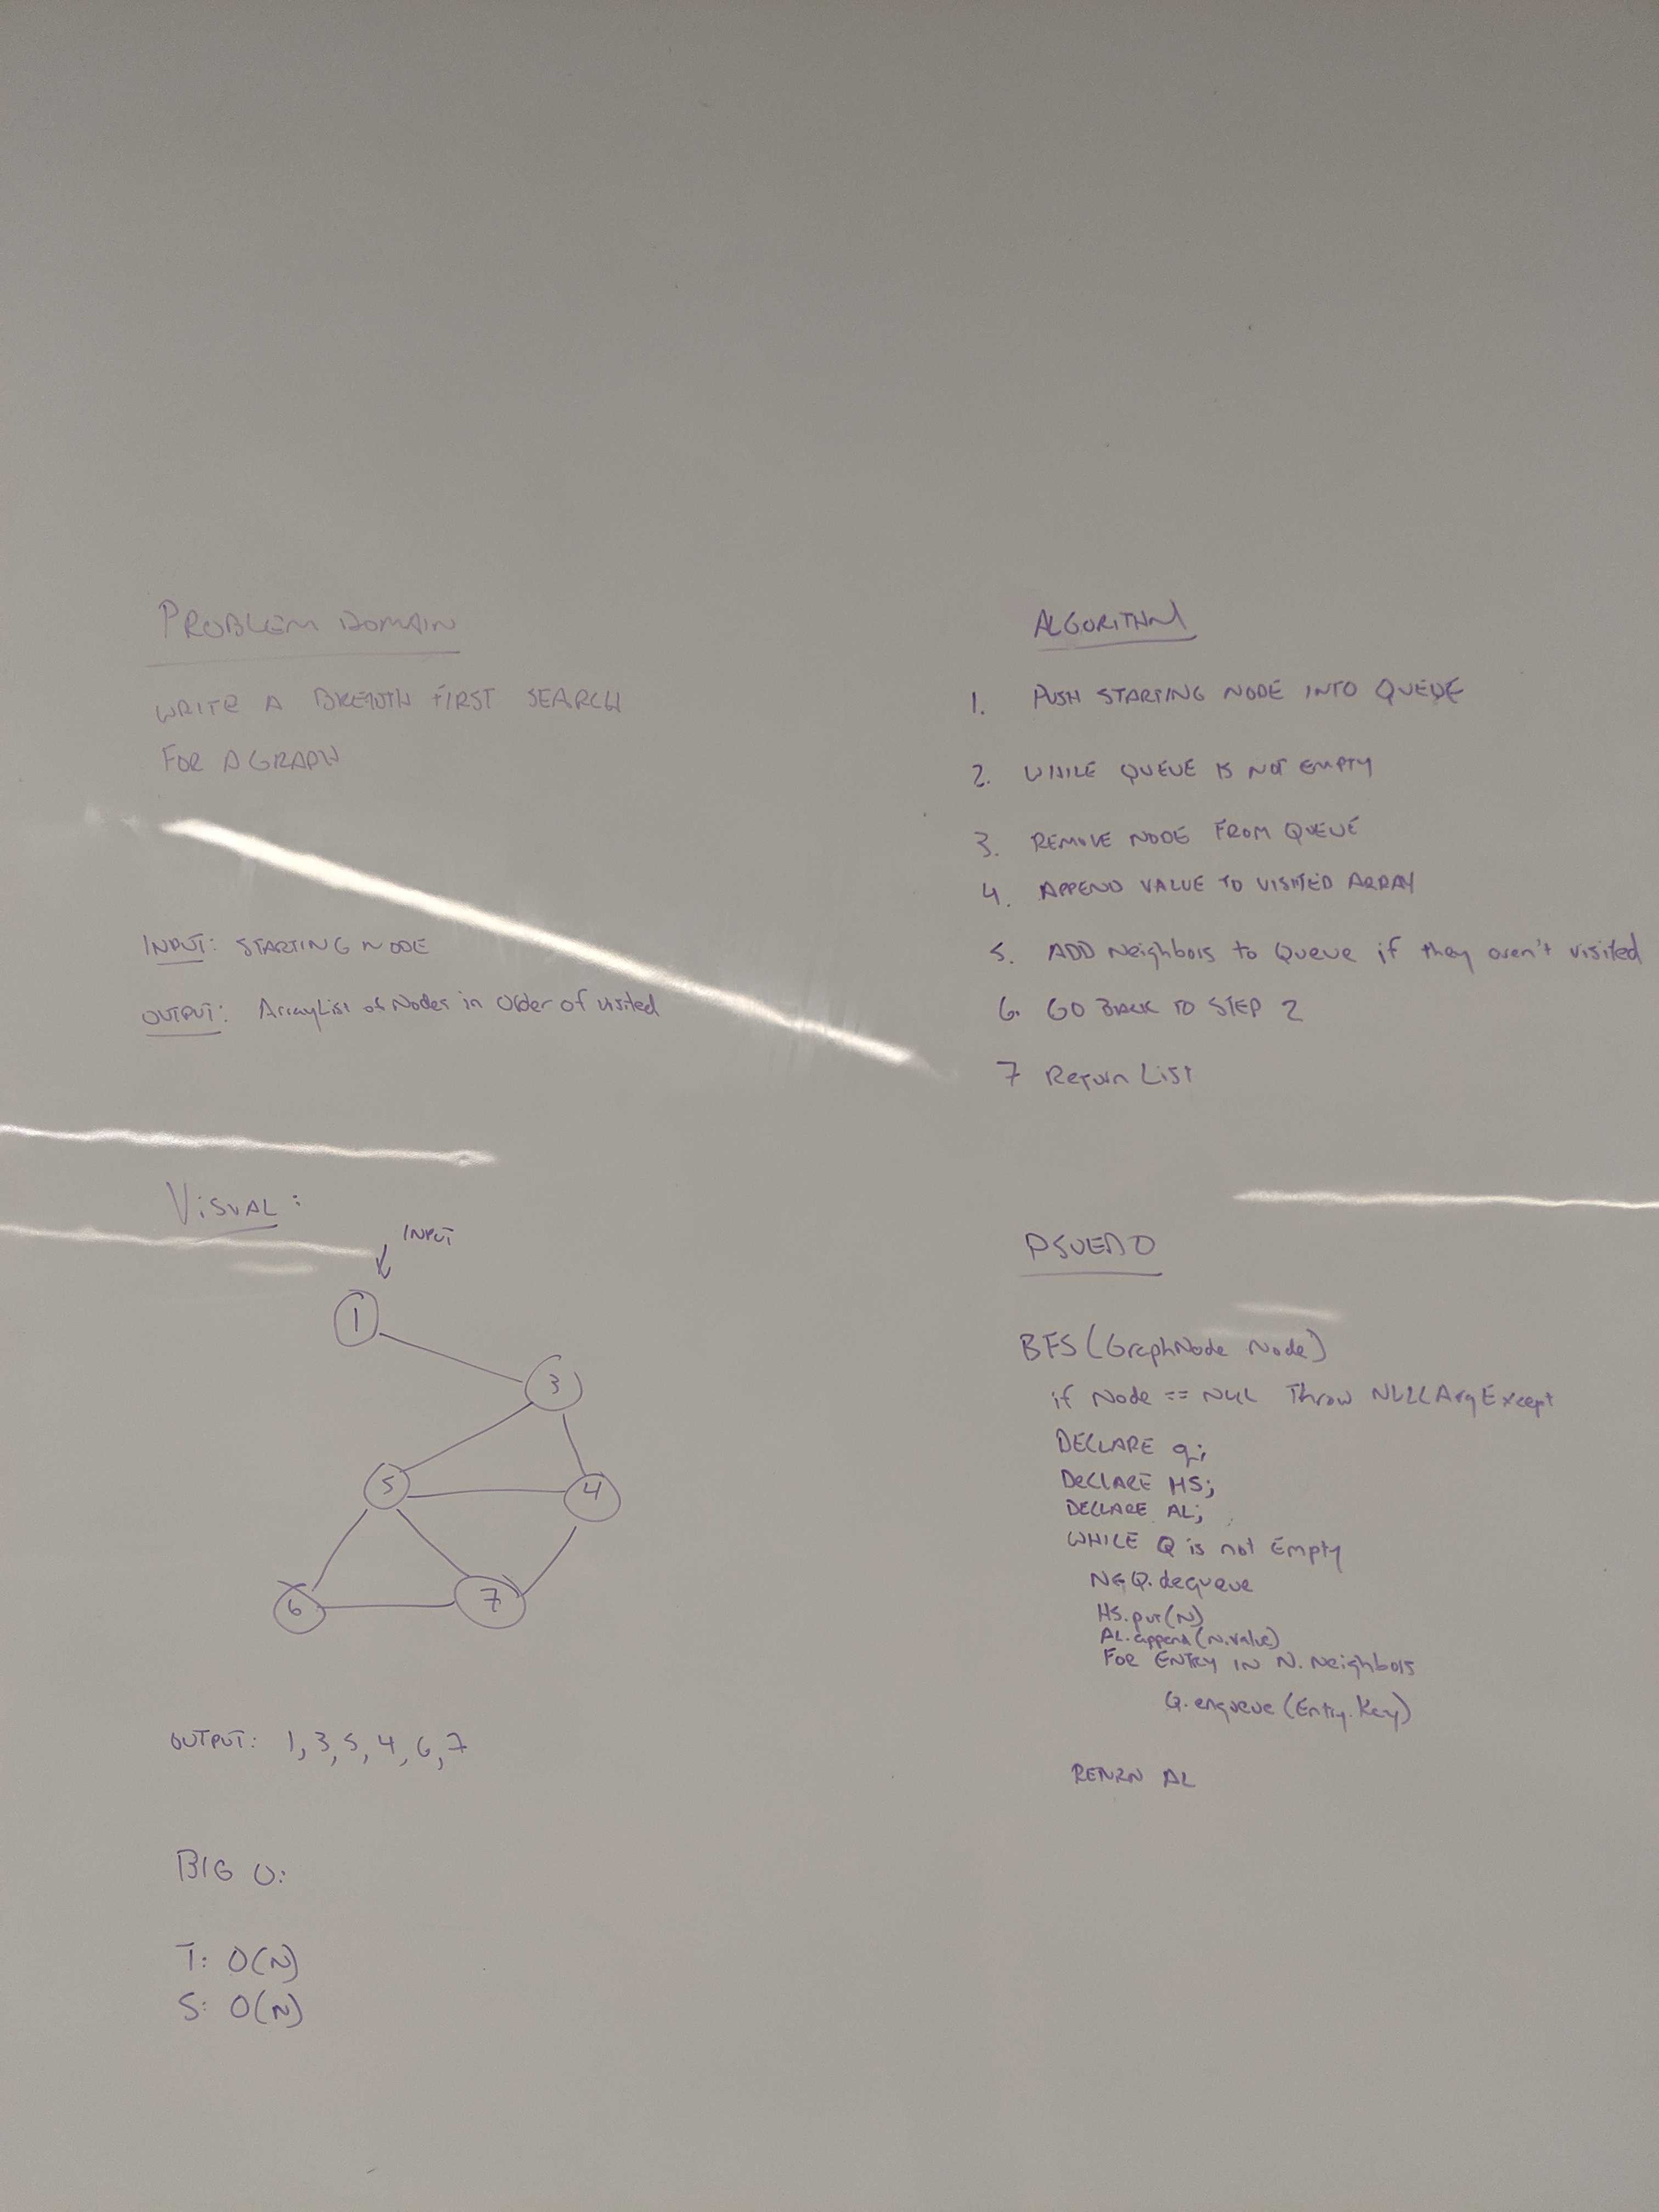 PROBLEM DOMAIN
WRITE A BREADTH FIRST SEARCH
FOR A GRAPH
INPUT: STARTING NODE
OUTPUT: ArrayList of Nodes in Order of visited
VISUAL:
INPUT
1
3
5
4
6
7
OUTPUT: 1, 3, 5, 4, 6, 7
BIG O:
T: O(N)
S: O(N)
ALGORITHM
1. PUSH STARTING NODE INTO QUEUE
2. WHILE QUEUE IS NOT EMPTY
3. REMOVE NODE FROM QUEUE
4. APPEND VALUE TO VISITED ARRAY
5. ADD Neighbors to Queue if they aren't visited
6. GO BACK TO STEP 2
7 Return List
PSUEDO
BFS (GraphNode Node)
if Node == NULL Throw NULLArgExcept
DECLARE q;
DECLARE HS;
DECLARE AL;
WHILE Q is not Empty
N ← Q.dequeue
HS.put(N)
AL.append(N.value)
FOR ENTRY IN N.Neighbors
Q.enqueue(Entry.Key)
RETURN AL